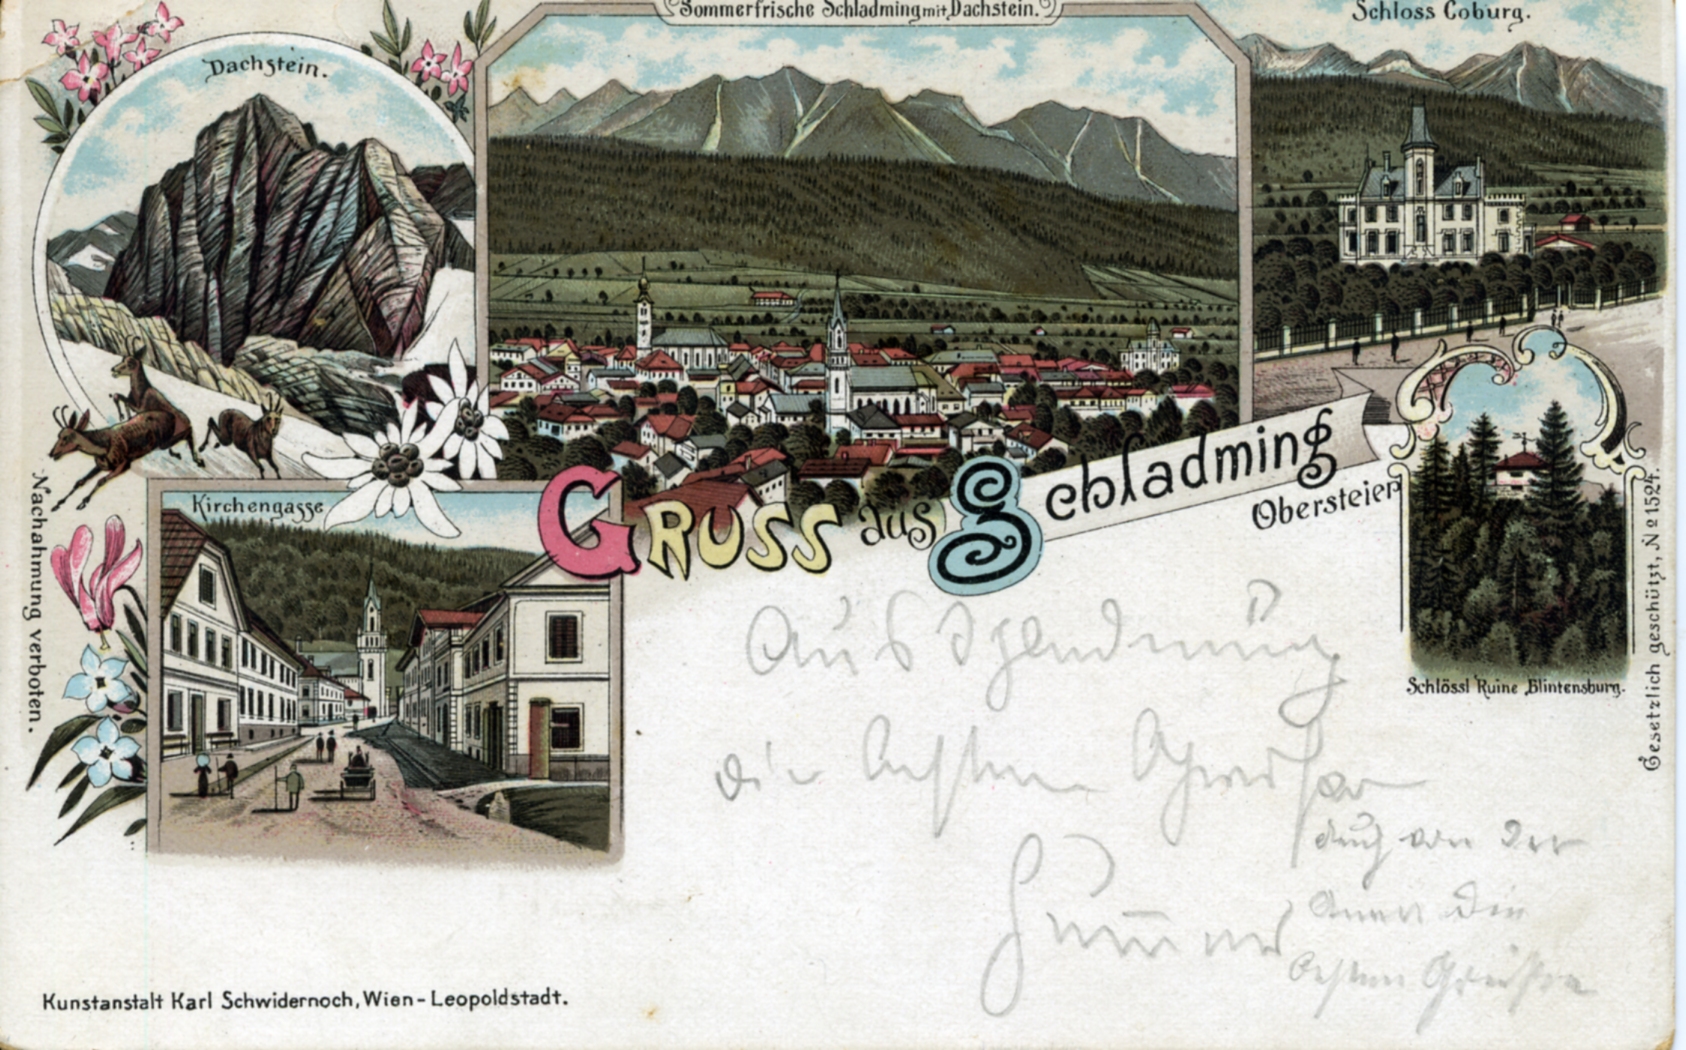 Sommerfrische Schladming mit Dachstein.
Schloss Coburg.
Dachstein.
Kirchengasse
Gruss aus Schladming
Obersteier
Schlössl Ruine Blintensburg.
Nachahmung verboten.
Gesetzlich geschützt, No 1524.
Aus
die besten
auch von der
die
besten Grüße
Kunstanstalt Karl Schwidernoch, Wien-Leopoldstadt.